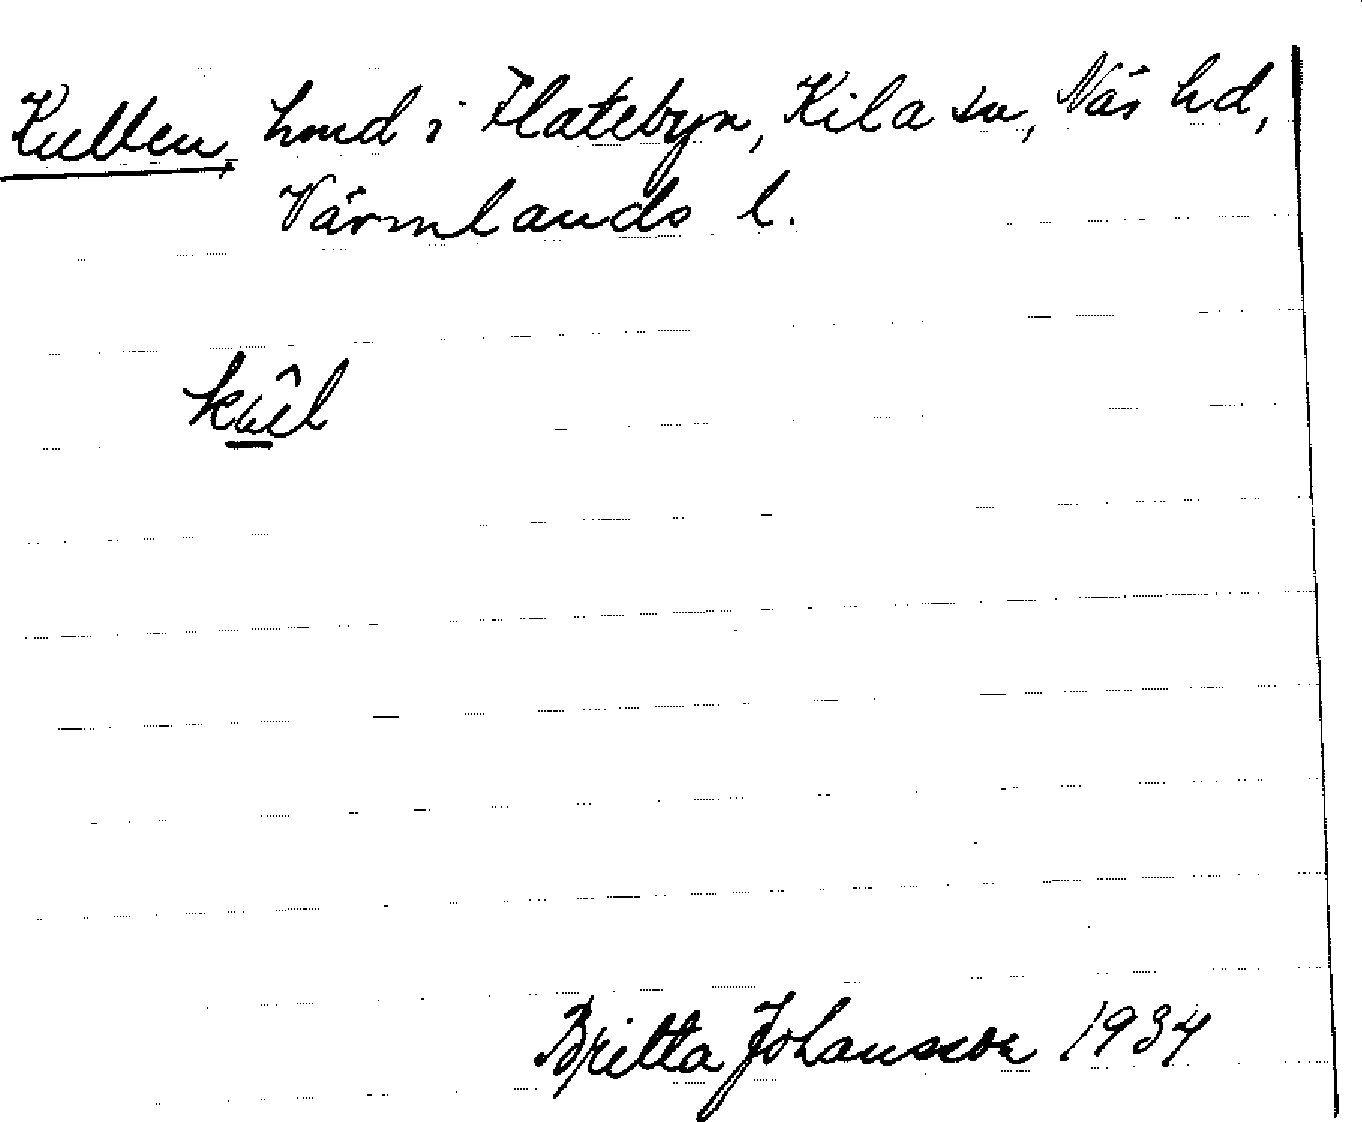 Kullen, hmd i Flatebyn, Kila sn, Näs hd,
Värmlands l.
Britta Johansson 1934